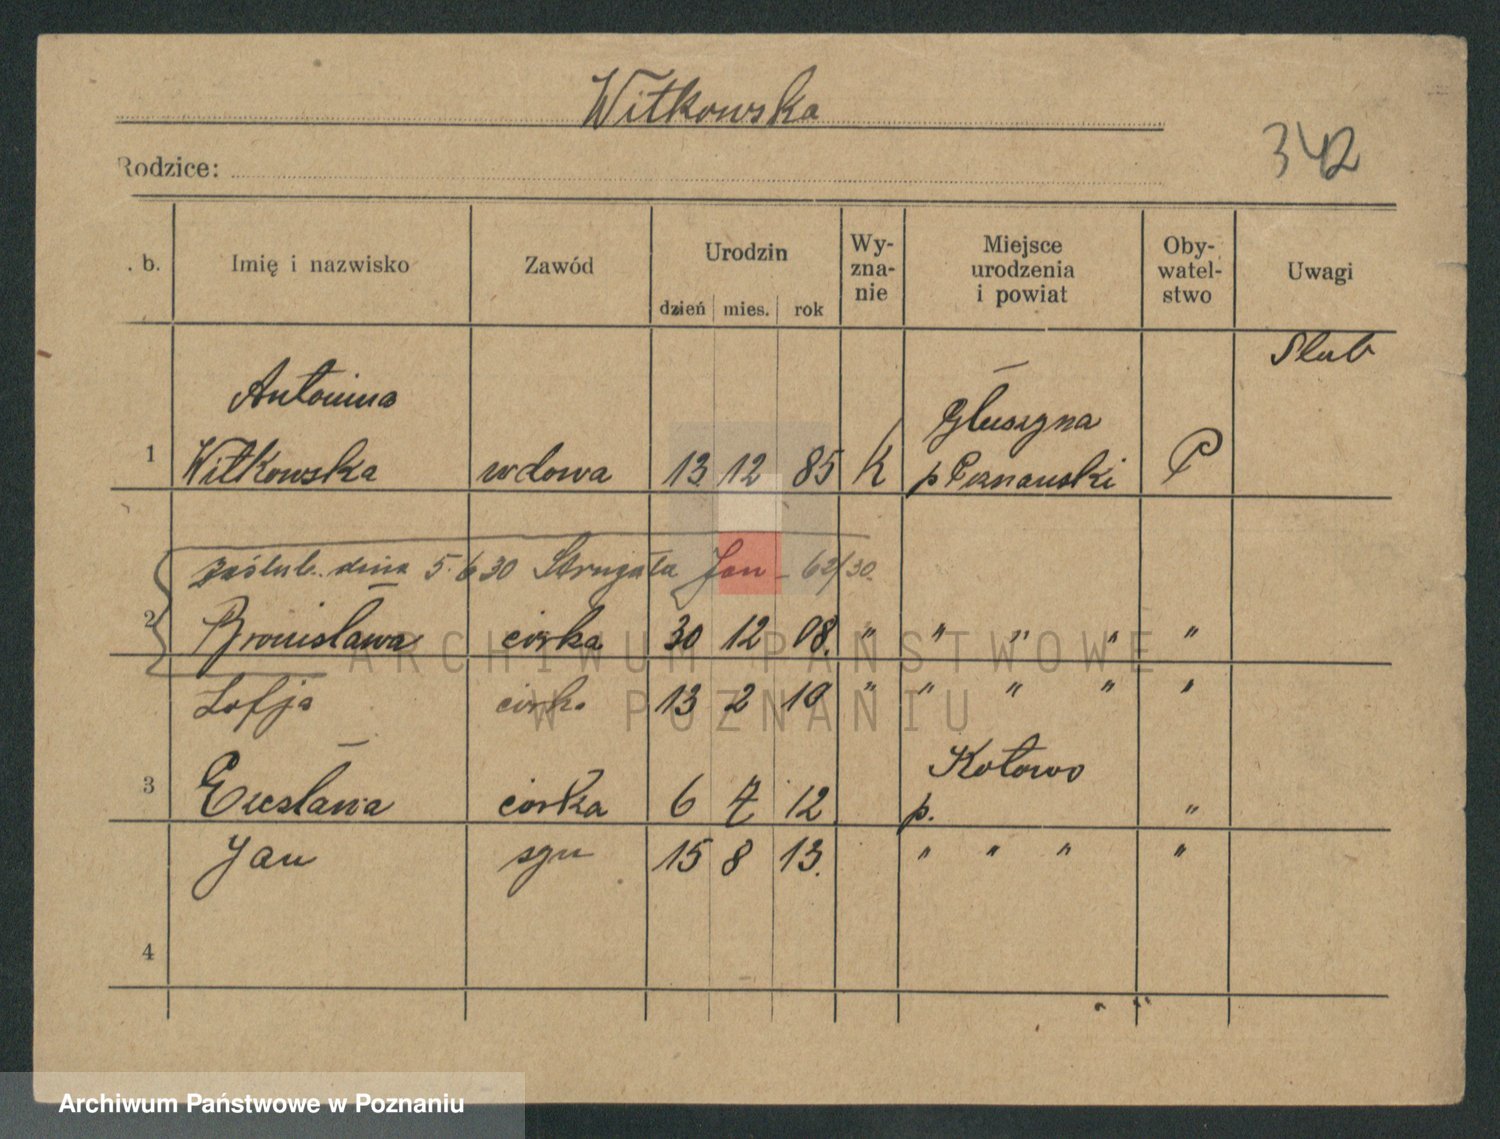 Witkowska
342
Rodzice:
. b. Imię i nazwisko Zawód Urodzin dzień mies. rok Wy-zna-nie Miejsce urodzenia i powiat Oby-watel-stwo Uwagi
Slub
Antonina Głuszyna
1 Witkowska wdowa 13 12 85 K p Poznański P
zaślub. dnia 5.6 30 Strugała Jan - 62/30.
2 Bronisława córka 30 12 08. " " " " "
Zofja córk. 13 2 10 " " " " "
Kotowo
3 Czesława córka 6 7 12 p. "
Jan syn 15 8 13. " " " "
4
ARCHIWUM PAŃSTWOWE
W POZNANIU
Archiwum Państwowe w Poznaniu